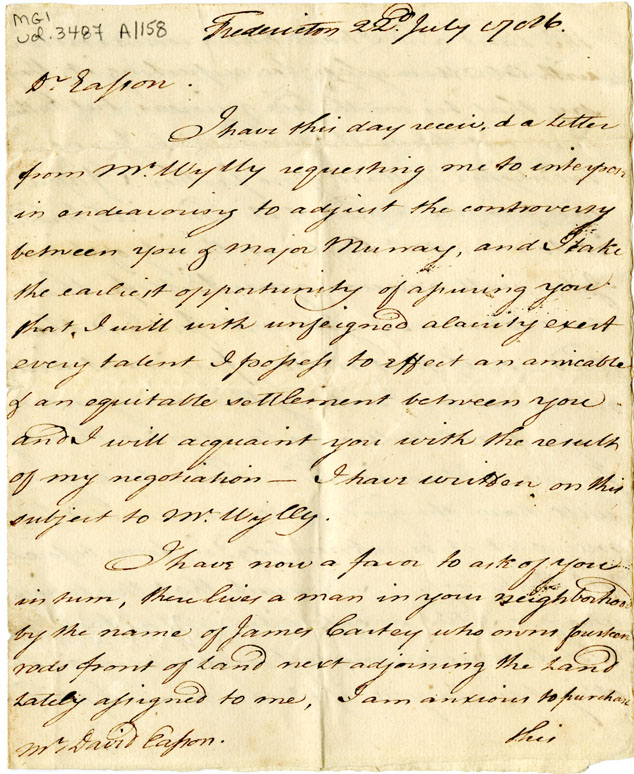 MG1
vol. 3487 A/158
Fredericton 22d. July 1786.
Dr. Easson.
I have this day receiv,d a letter
from Mr. Wylly requesting me to interpose
in endeavouring to adjust the controversy
between you & Major Murray, and I take
the earliest opportunity of assuring you
that I will with unfeigned alacrity exert
every talent I possess to effect an amicable
& an equitable settlement between you
and I will acquaint you with the result
of my negotiation — I have written on this
subject to Mr. Wylly.
I have now a favor to ask of you
in turn, there lives a man in your neighborhood
by the name of James Carkey who owns fourteen
rods front of Land next adjoining the Land
Lately assigned to me, I am anxious to purchase
Mr. David Easson. this